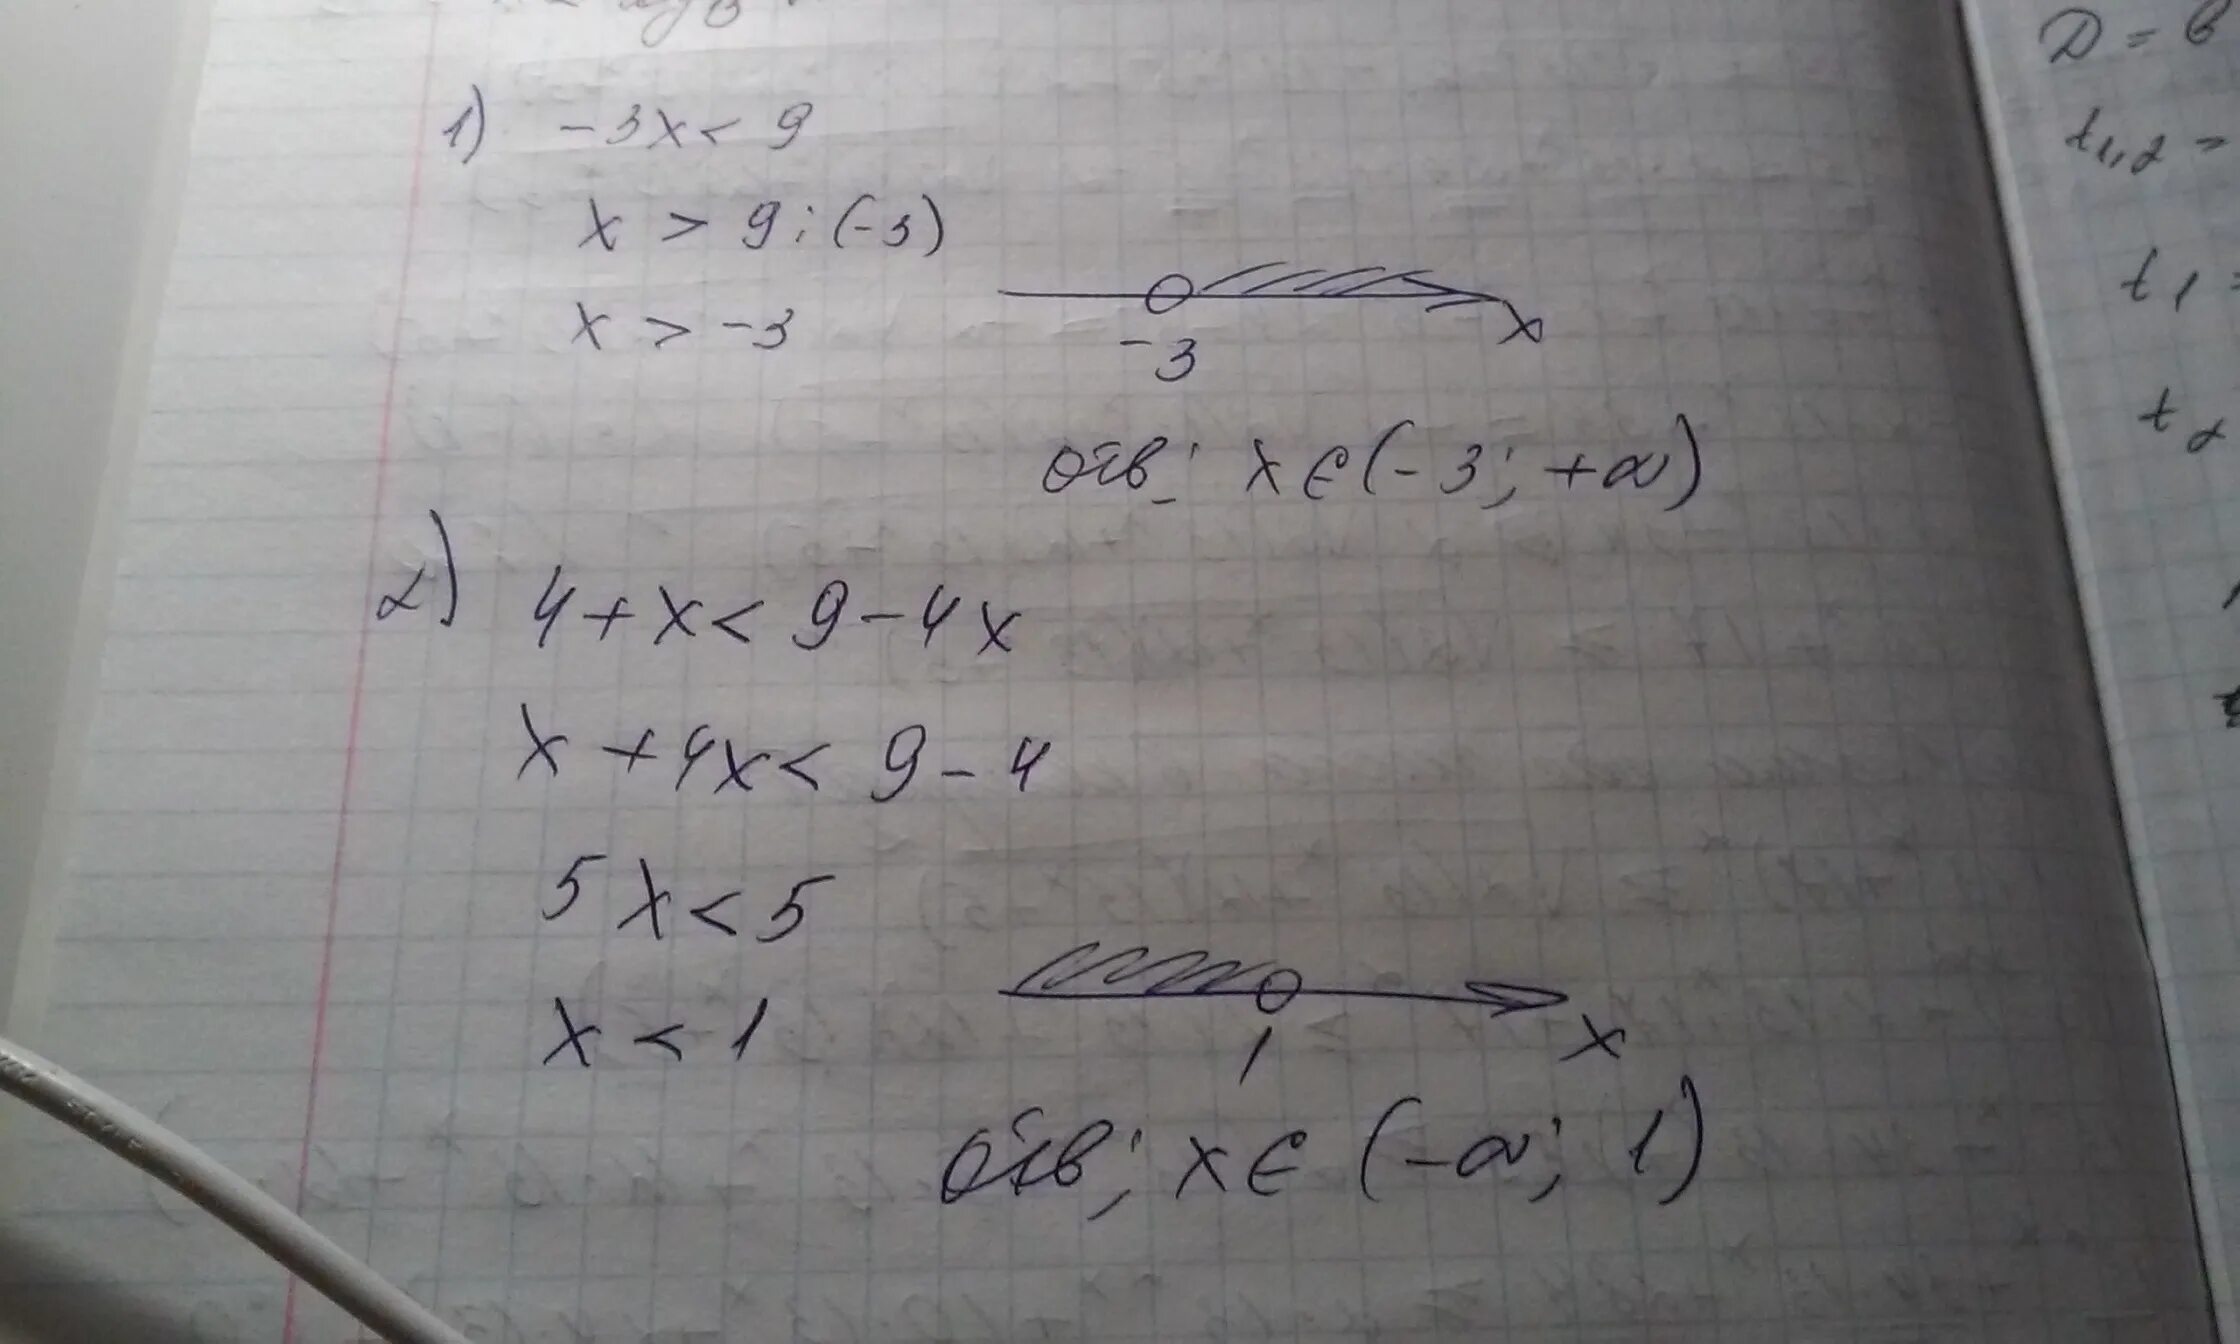 1) -3x < 9
x > 9 : (-3)
x > -3
-3 x
отв: x ∈ (-3; +∞)
2) 4 + x < 9 - 4x
x + 4x < 9 - 4
5x < 5
x < 1
1 x
отв: x ∈ (-∞; 1)
D = b
t1,2 =
t1 =
t2